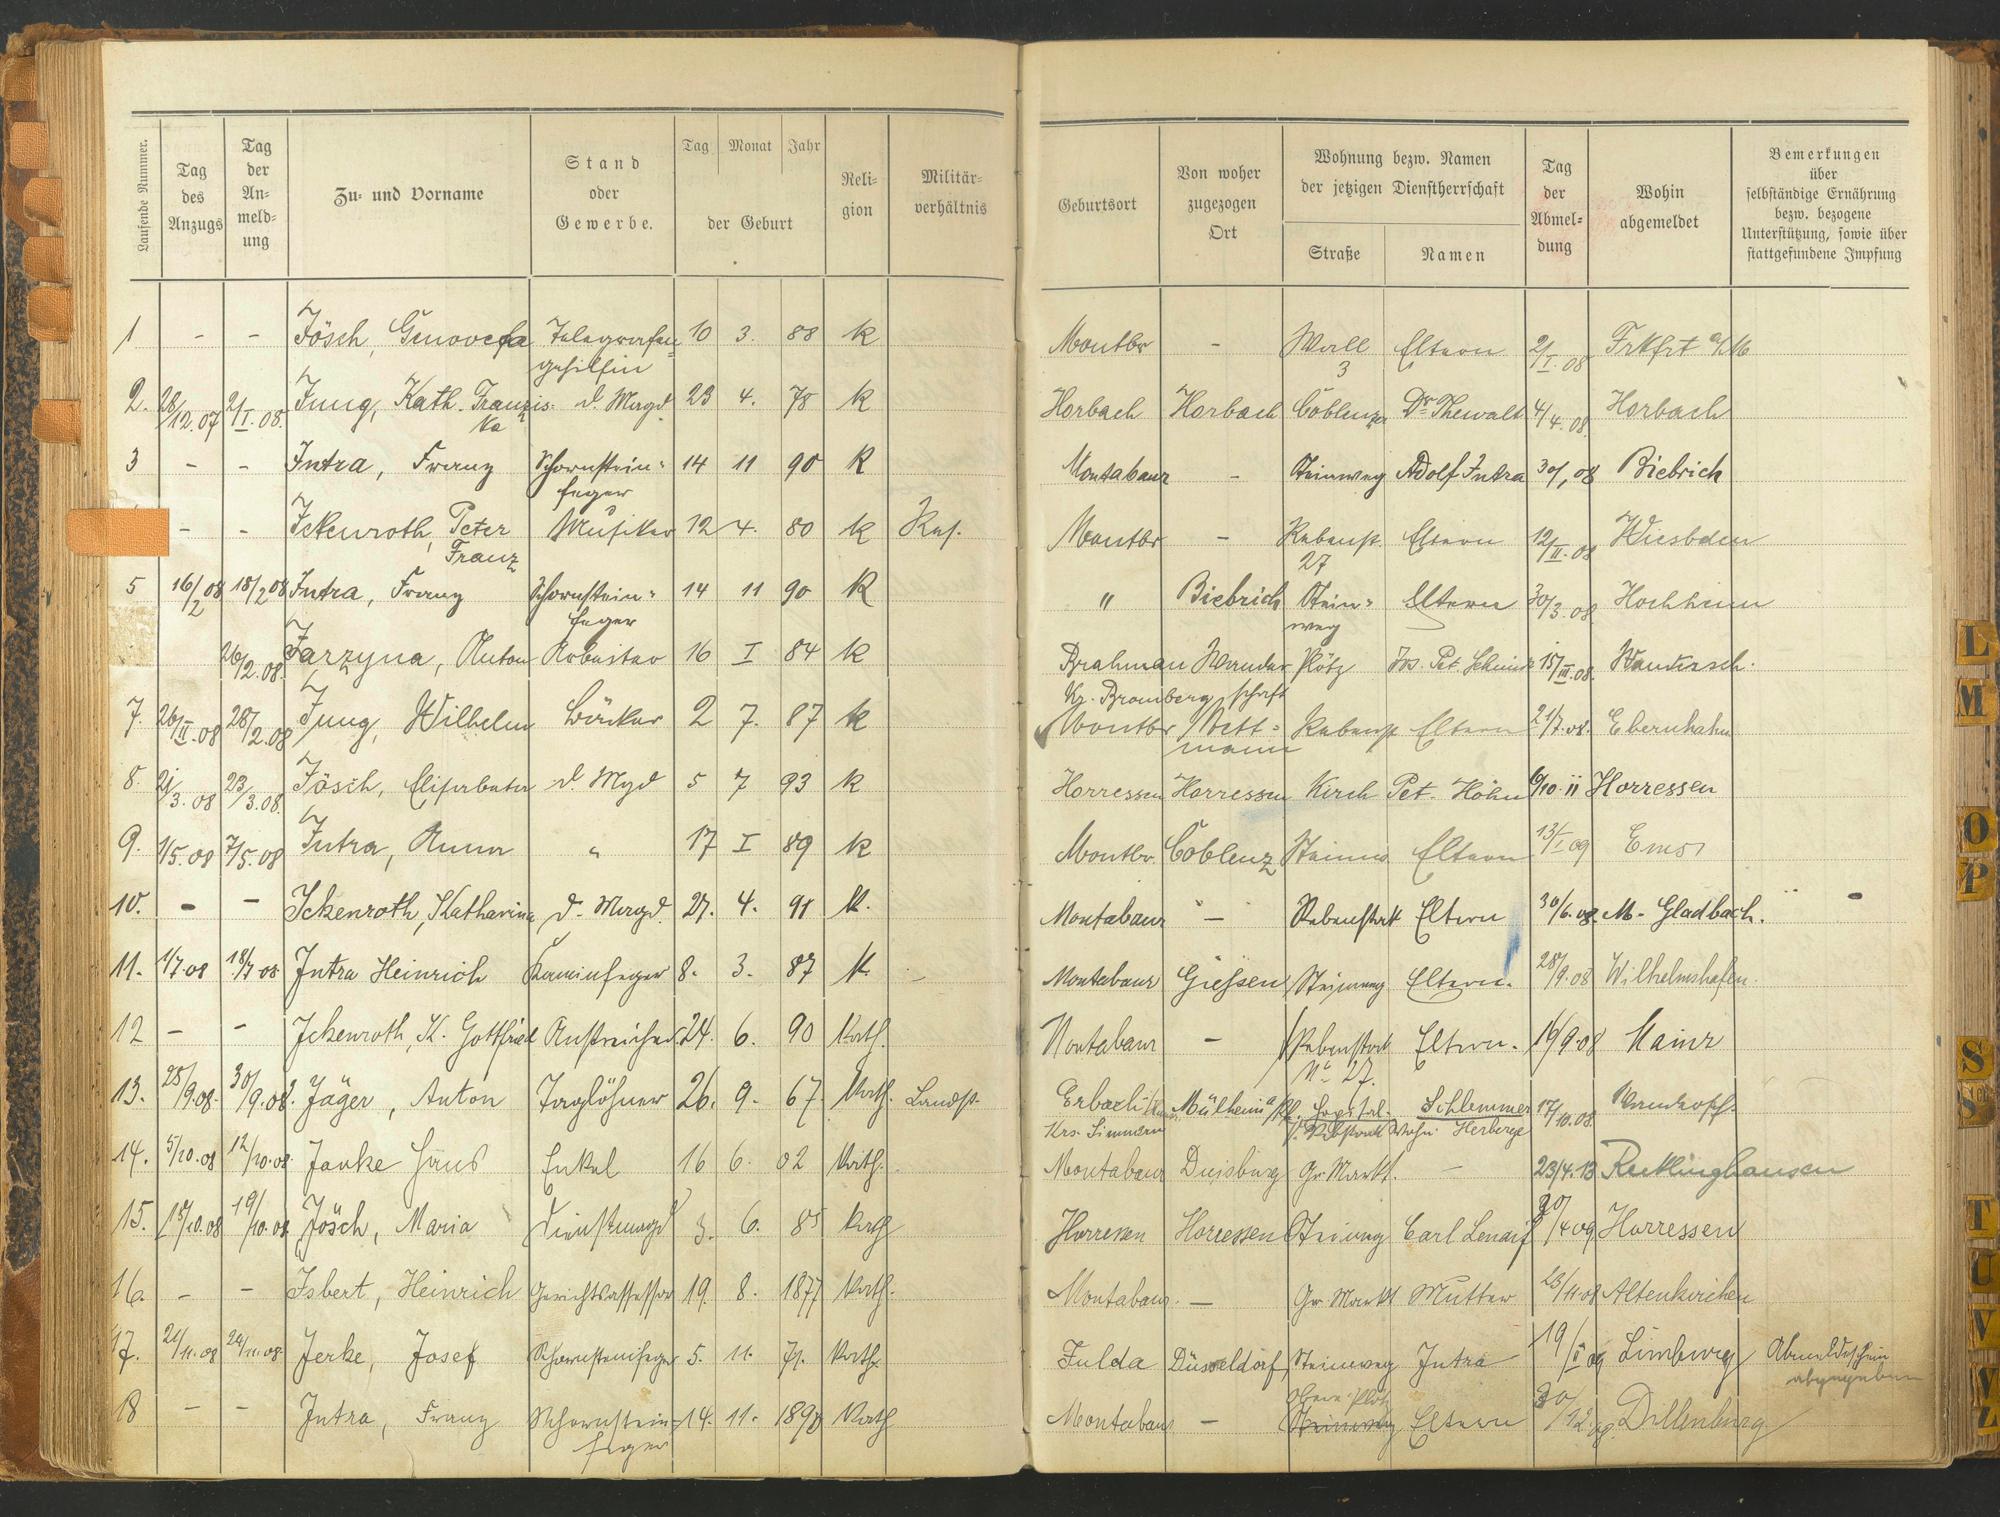 Laufende Nummer.
Tag des Anzugs
Tag der An-meld-ung
Zu- und Vorname
Stand oder Gewerbe.
Tag Monat Jahr der Geburt
Reli-gion
Militär-verhältnis
Geburtsort
Von woher zugezogen Ort
Wohnung bezw. Namen der jetzigen Dienstherrschaft
Straße
Namen
Tag der Abmel-dung
Wohin abgemeldet
Bemerkungen über selbständige Ernährung bezw. bezogene Unterstützung, sowie über stattgefundene Impfung
1 - - Jösch, Genovefa Telegrafen-gehilfin 10 3. 88 k Montbr - Wall 3 Eltern 2/I. 08 Frkfrt a/M
2. 28/12.07 2/I.08. Jung, Kath. Franzis-ka d. Magd 23 4. 78 k Horbach Horbach Coblenzer Dr. Thewalt 4/4.08. Horbach
3 - - Intra, Franz Schornstein-feger 14 11 90 k Montabaur - Steinweg Adolf Intra 30/1 08 Biebrich
- - Ickenroth, Peter Franz Musiker 12 4. 80 k Res. Montbr - Rebenst. 27 Eltern 12/II.08 Wiesbden
5 16/2 08 18/2 08 Intra, Franz Schornstein-feger 14 11 90 k " Biebrich Stein-weg Eltern 30/3.08 Hochheim
26/2.08. Jarzyna, Anton Arbeiter 16 I 84 k Brahman Kr. Bromberg Wander schaft Plötz Jos. Pet. 15/III.08. Wandersch.
7. 26/II.08 28/2.08 Jung, Wilhelm Bäcker 2 7. 87 k Montbr Mett-mann Rebenst Eltern 21/7.08. Ebernhahn
8. 21/3.08 23/3.08. Jösch, Elisabeth d. Mgd 5 7 93 k Horressen Horressen Kirch Pet. Höhn 6/10.11 Horressen
9. 1/5.08 7/5.08 Intra, Anna " 17 I 89 k Montbr. Coblenz Steinw Eltern 13/I 09 Ems
10. - - Ickenroth, Katharina d. Magd. 27. 4. 91 k. Montabaur - Rebenstock Eltern 30/6.08. M-Gladbach.
11. 1/7.08 18/7 08 Intra Heinrich Kaminfeger 8. 3. 87 k. Montabaur Giessen Steinweg Eltern. 28/9.08 Wilhelmshafen.
12 - - Ickenroth, K. Gottfried Anstreicher. 24. 6. 90 Kath. Montabaur - Rebenstock No 27. Eltern. 16/9.08 Mainz
13. 28/9.08. 30/9.08. Jäger, Anton Taglöhner 26. 9. 67. Kath. Landst. Erbach Krs. Simmern Mülheim a/R. Hospital- Schlemmer Herberge 17/10.08.
14. 5/10.08 12/10.08. Janke Hans Enkel 16 6. 02 Kath. Montabaur Duisburg Gr. Markt. - 23/4.13 Recklinghausen
15. 15/10.08 19/10.08 Jösch, Maria Dienstmagd 3. 6. 85 Kath Horressen Horressen Steinweg Carl 30/4 09 Horressen
16. - - Isbert, Heinrich Gerichtsassessor 19. 8. 1877 Kath. Montabaur. - Gr. Markt Mutter 23/11.08 Altenkirchen
17. 21/11.08 24/11.08. Jerke, Josef Schornsteinfeger 5. 11. 71. Kath. Fulda Düsseldorf, Steinweg Intra 19/II 09 Limburg Abmeldeschein abgegeben
18 - - Intra, Franz Schornstein-feger 14. 11. 1890 Kath Montabaur - Steinweg Eltern 30/12. Dillenburg
L
M
O
P
S
T
U
V